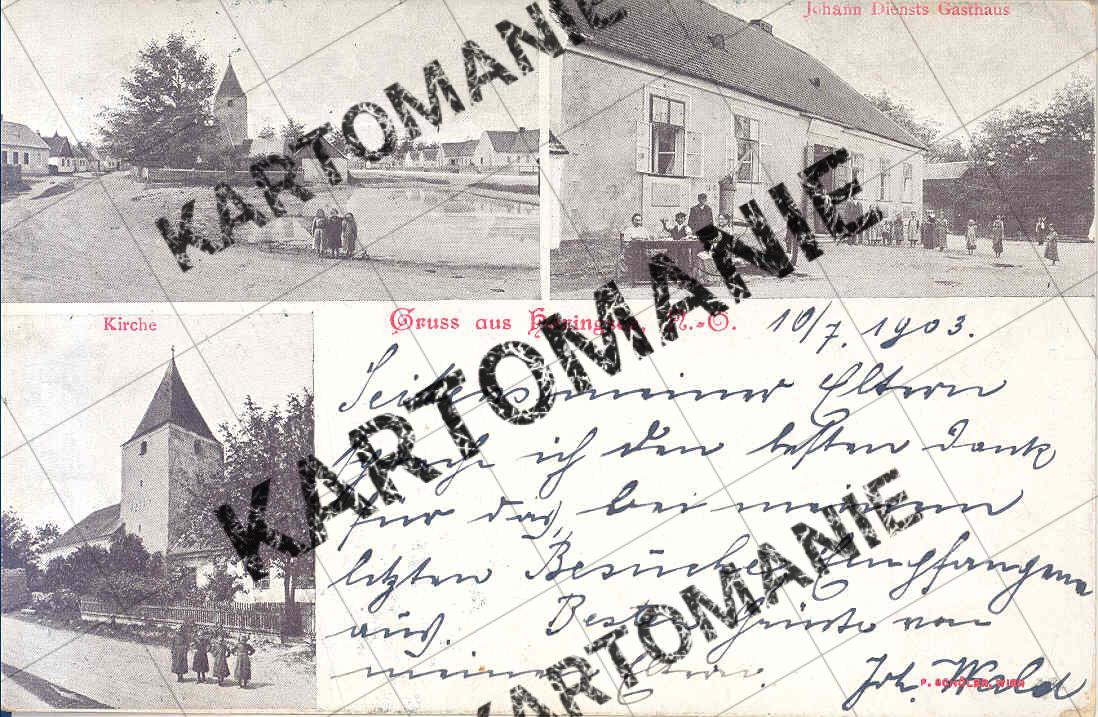 Johann Diensts Gasthaus
KARTOMANIE
KARTOMANIE
Kirche
Gruss aus N.-O.
10/7. 1903.
Seitens meiner Eltern
spreche ich den besten Dank
für das bei meinem
letzten Besuche Empfangene
aus. Besten Grüsse von
meinen Eltern.
Joh. Wald
P. SCHÖLER, WIEN
KARTOMANIE
KARTOMANIE